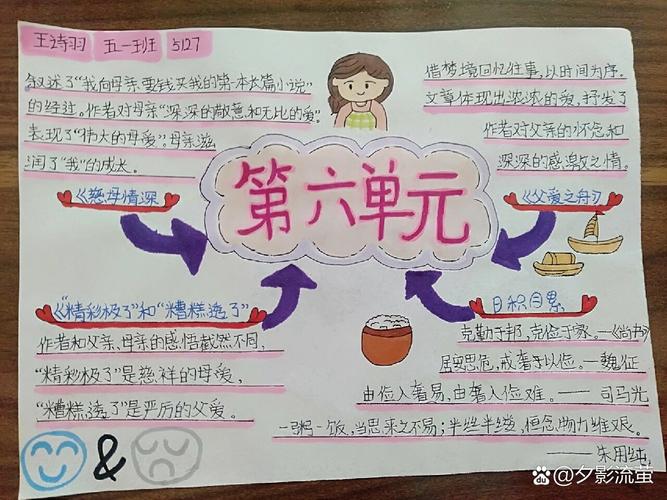 王诗羽 五一班 5127
叙述了“我向母亲要钱买我的第一本长篇小说”
的经过。作者对母亲“深深的敬意和无比的爱”
表现了“伟大的母爱”。母亲滋
润了“我”的成长。
《慈母情深
借梦境回忆往事,以时间为序.
文章体现出浓浓的爱,抒发了
作者对父亲的怀念和
深深的感激之情。
《父爱之舟》
第六单元
《“精彩极了”和“糟糕透了”
作者和父亲、母亲的感悟截然不同,
“精彩极了”是慈祥的母爱,
“糟糕透了”是严厉的父爱。
&
日积月累
克勤于邦,克俭于家。—《尚书》
居安思危,戒奢于以俭。—魏征
由俭入奢易,由奢入俭难。——司马光
一粥一饭,当思来之不易;半丝半缕,恒念物力维艰。
——朱用纯
Bai du 百度 @夕影流萤